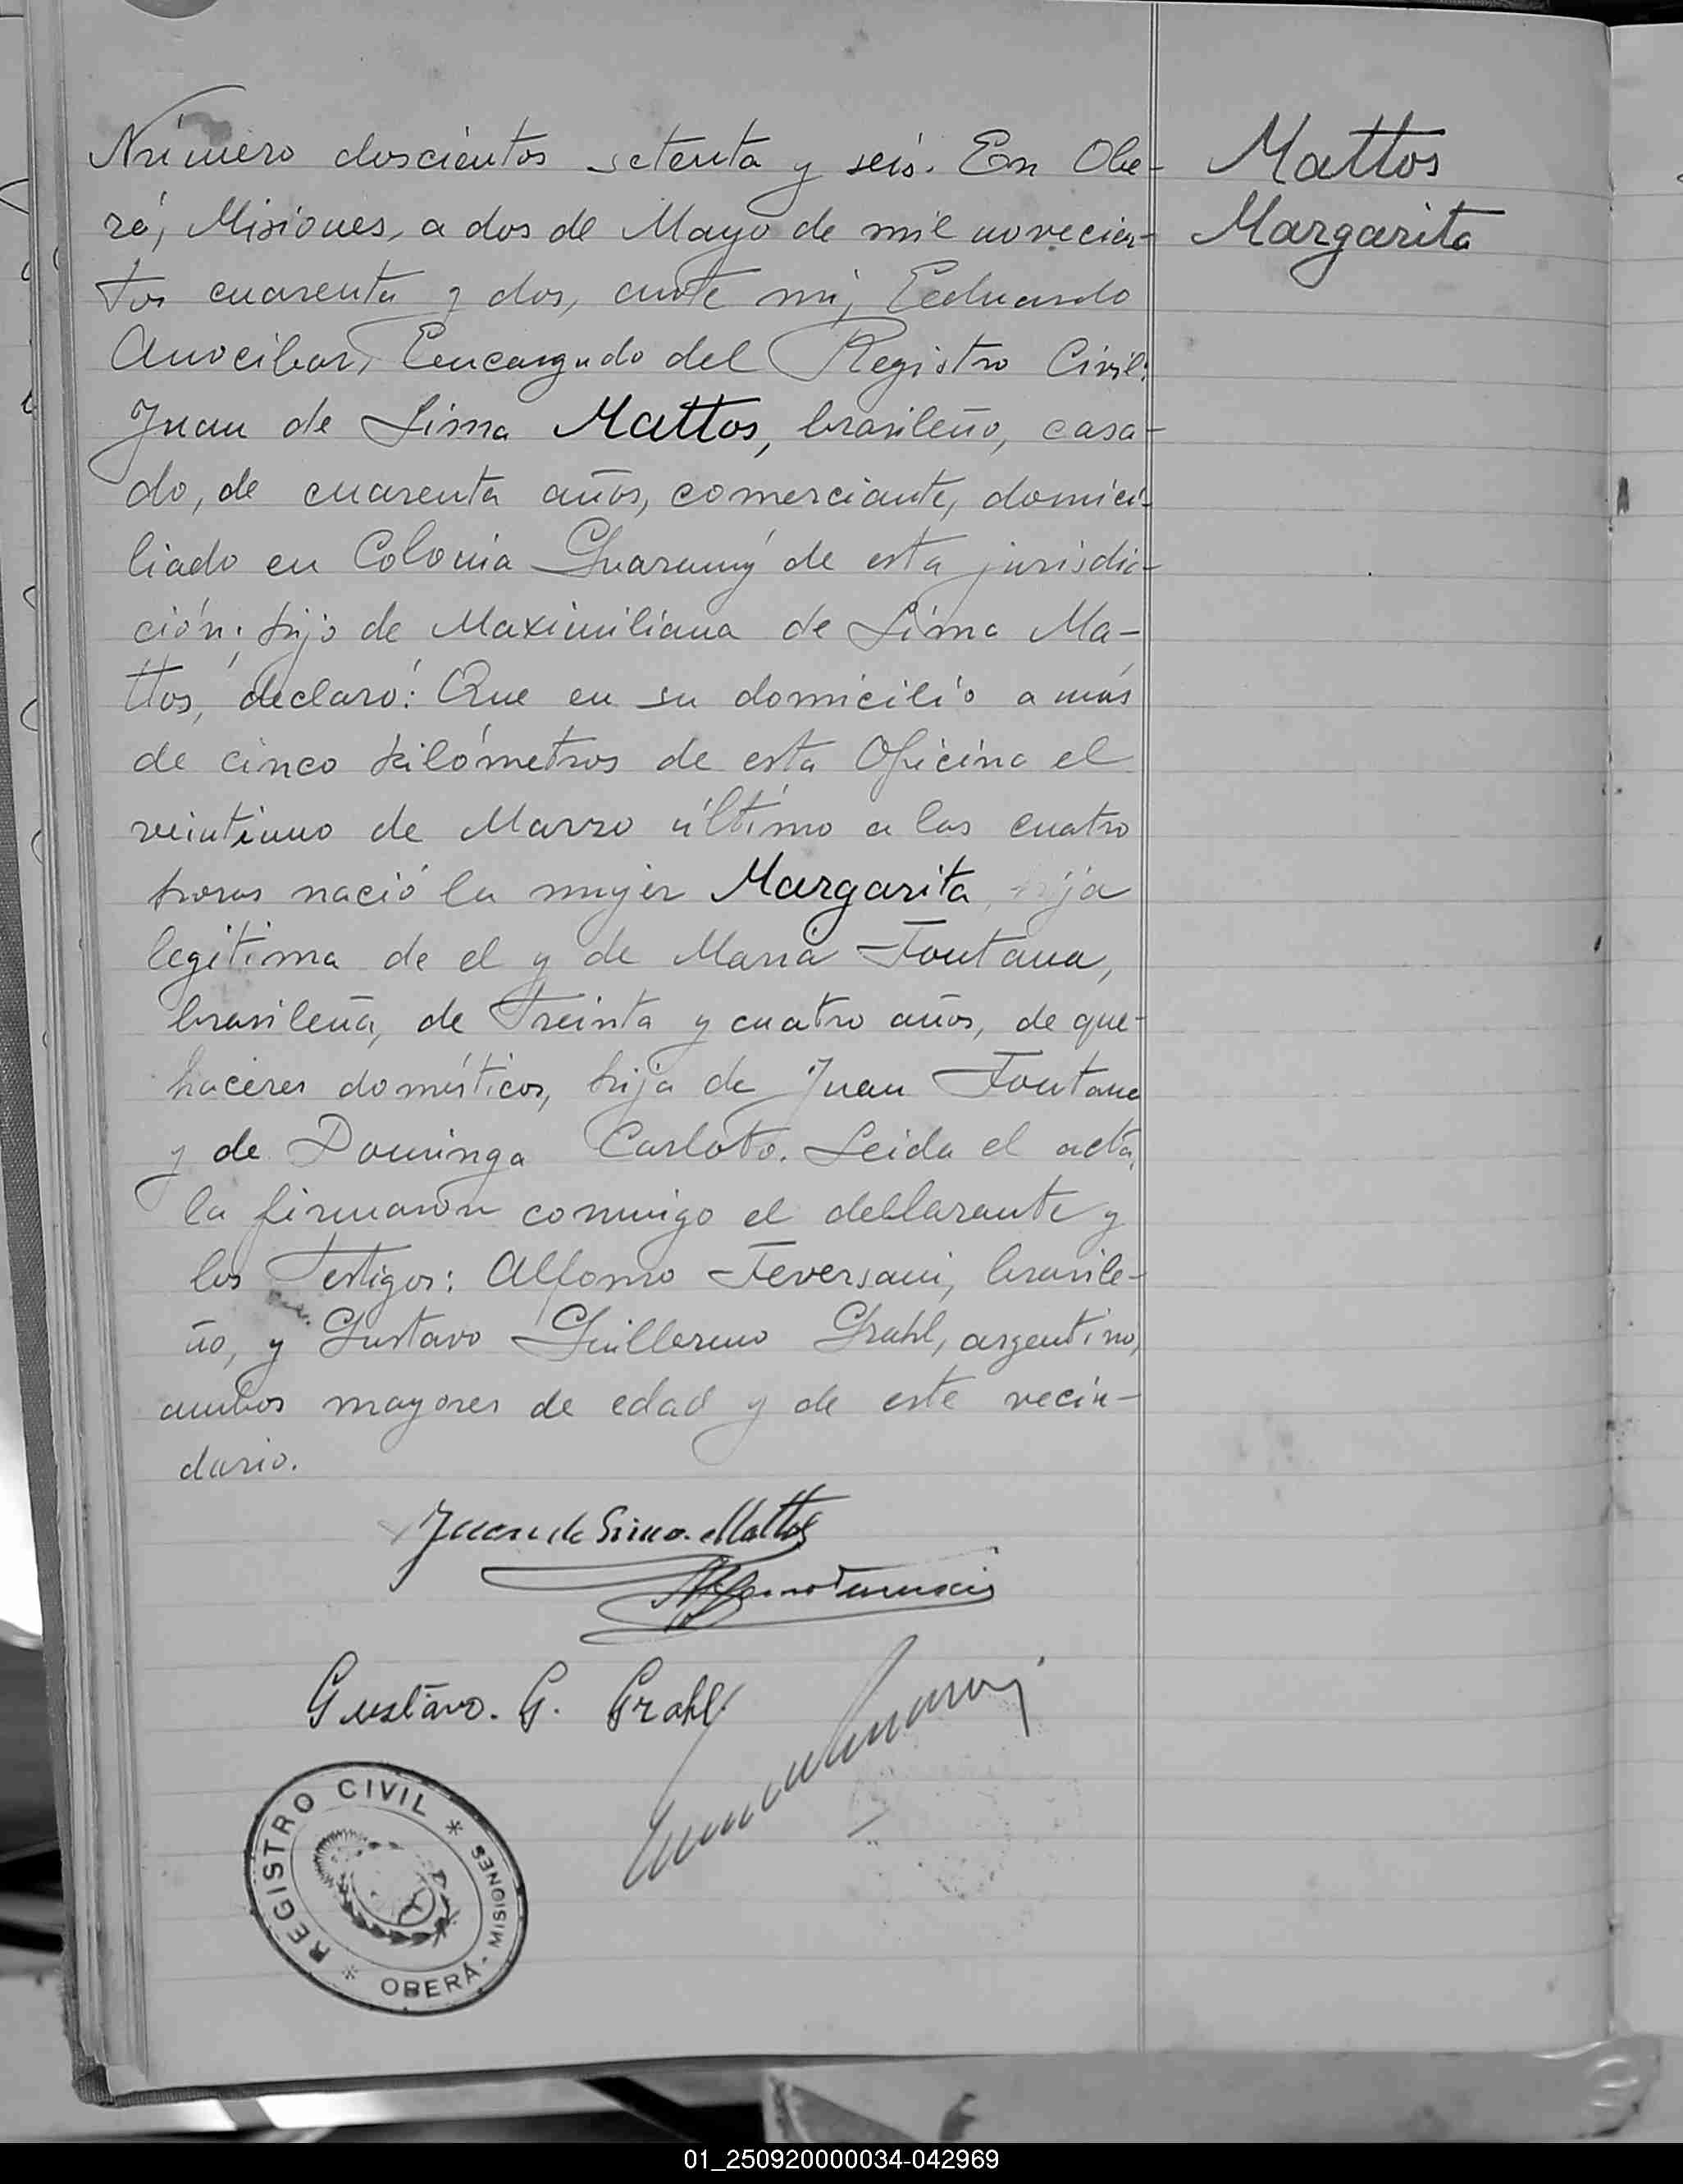 Número doscientos setenta y seis. En Obe-
rá, Misiones, a dos de Mayo de mil novecien-
tos cuarenta y dos, ante mi, Eduardo
Anocibar, Encargado del Registro Civil:
Juan de Lima Mattos, brasileño, casa-
do, de cuarenta años, comerciante, domici-
liado en Colonia Guarany de esta jurisdic-
ción; hijo de Maximiliana de Lima Ma-
ttos, declaró: Que en su domicilio a más
de cinco kilómetros de esta Oficina el
veintiuno de Marzo último a las cuatro
horas nació la mujer Margarita, hija
legitima de el y de Maria Fontana,
brasileña, de treinta y cuatro años, de que-
haceres domésticos, hija de Juan Fontana
y de Dominga Carloto. Leida el acta,
la firmaron conmigo el declarante y
los Testigos: Alfonso Feversani, brasile-
ño, y Gustavo Guillermo Grahl, argentino,
ambos mayores de edad y de este vecin-
dario.
Mattos
Margarita
Juan de Lima Mattos
Gustavo. G. Grahl
REGISTRO CIVIL * OBERÁ - MISIONES *
01_250920000034-042969